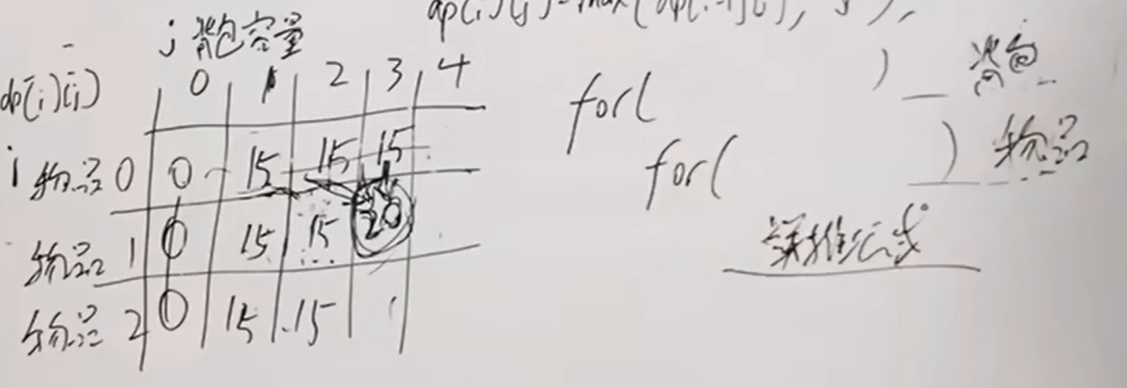 dp[i][j]=max(dp[i-1][j],
j 背包容量
dp[i][j]
0 1 2 3 4
i 物品0 0 15 15 15
物品1 0 15 15 20
物品2 0 15 15
for( ) 背包
for( ) 物品
递推公式